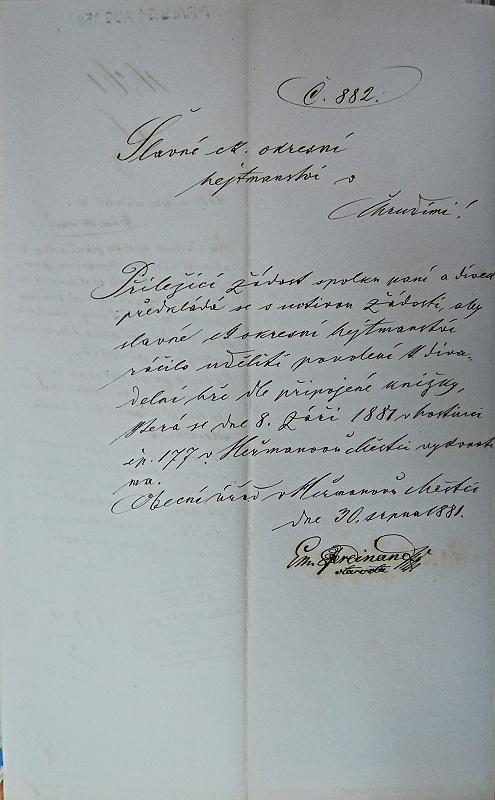 Č. 882.
Slavné ck. okresní
hejtmanství v
Chrudimi!
Přiležící žádost spolku paní a dívek
předkládá se s uctivou žádostí, aby
slavné ck okresní hejtmanství
ráčilo uděliti povolení k diva-
delní hře dle připojené knížky,
která se dne 8. září 1881 v hostinci
čp. 177 v Heřmanově Městci vykonati
má.
Obecní úřad v Heřmanově Městci
dne 30. srpna 1881.
Em. Ferdinand
starosta